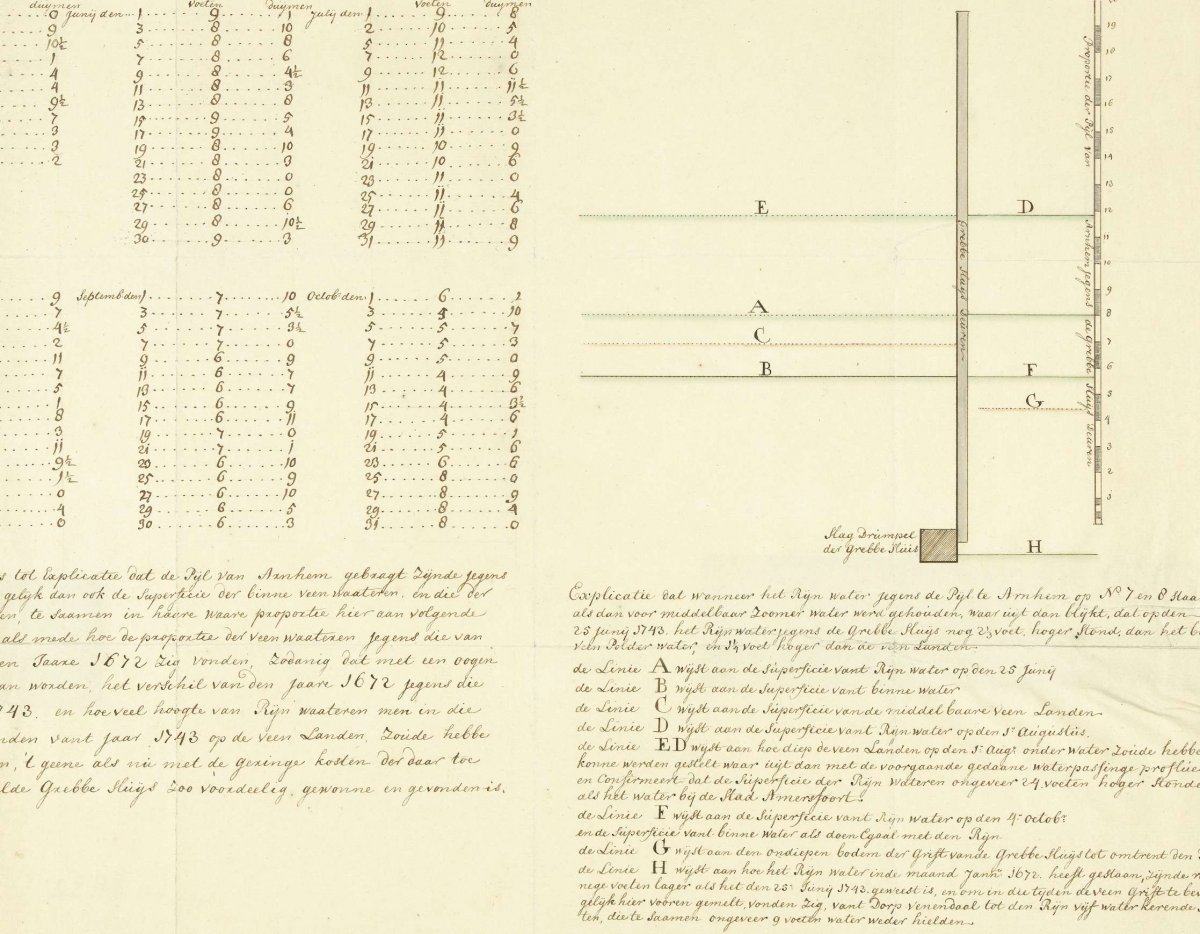 duymen voeten duymen voeten duymen
0 Junij den 1 9 1 Julij den 1 9 8
9 3 8 10 2 10 5
10½ 5 8 8 5 11 4
1 7 8 6 7 12 0
4 9 8 4½ 9 12 6
4 11 8 3 11 11 11½
9½ 13 8 8 13 11 5½
7 15 9 5 15 11 3½
3 17 9 4 17 11 0
3 19 8 10 19 10 9
2 21 8 3 21 10 6
23 8 0 23 11 0
25 8 0 25 11 4
27 8 6 27 11 6
29 8 10½ 29 11 8
30 9 3 31 11 9
9 Septemb. den 1 7 10 Octob. den 1 6 2
7 3 7 5½ 3 5 10
4½ 5 7 3½ 5 5 7
2 7 7 0 7 5 3
11 9 6 9 9 5 0
7 11 6 7 11 4 9
5 13 6 7 13 4 6
1 15 6 9 15 4 3½
8 17 6 11 17 4 6
3 19 7 0 19 5 1
11 21 7 1 21 5 6
9½ 23 6 10 23 6 6
1½ 25 6 9 25 8 0
0 27 6 10 27 8 9
4 29 6 5 29 8 4
0 30 6 3 31 8 0
s tot Explicatie dat de Pijl van Arnhem gebragt Zijnde jegens
gelijk dan ook de Superficie der binne veen waateren, en die der
en, te Saamen in haare waare proportie hier aan volgende
als mede hoe de proportie der veen waateren jegens die van
en Jaare 1672 Zig vonden, Zodanig dat met een oogen
an worden, het verschil van den jaare 1672 jegens die
743. en hoe veel hoogte van Rijn waateren men in die
nden vant jaar 1743 op de veen Landen, Zoude hebbe
n, 't geene als nu met de geringe kosten der daar toe
lde Grebbe Sluijs Zoo voordeelig, gewonne en gevonden is.
E
D
A
C
B
F
G
H
Grebbe Sluijs Deuren
Proportie der Pijl van Arnhem jegens de grebbe Sluijs Deuren
19
17
16
15
14
13
12
11
10
9
8
7
6
5
4
3
2
Slag Drumpel
der Grebbe Sluis
Explicatie dat wanneer het Rijn water jegens de Pijl te Arnhem op No. 7 en 8 Staa
als dan voor middelbaar Zoomer water werd gehouden, waar uijt dan blijkt, dat op den
25 Junij 1743. het Rijn water jegens de Grebbe Sluijs nog 2½ voet, hoger Stond, dan het b
veen Polder water, en 1¼ voet hoger dan de veen Landen
de Linie A wijst aan de Superficie vant Rijn water op den 25 Junij
de Linie B wijst aan de Superficie vant binne water
de Linie C wijst aan de Superficie van de middelbaare veen Landen
de Linie D wijst aan de Superficie vant Rijn water op den 1e. Augustus.
de Linie ED wijst aan hoe diep de veen Landen op den 1e. Augt. onder water Zoude hebbe
konne werden gestelt waar uijt dan met de voorgaande gedaane waterpassinge proflue
en Confermeert dat de Superficie der Rijn Wateren ongeveer 24 voeten hoger Stonde
als het water bij de Stad Amersfoort.
de Linie F wijst aan de Superficie vant Rijn water op den 4e. octobr.
en de Superficie vant binne water als doen Egaal met den Rijn
de Linie G wijst aan den ondiepen bodem der Grift van de Grebbe Sluijs tot omtrent den
de Linie H wijst aan hoe het Rijn water inde maand Jannr. 1672. heeft gestaan, Zijnde
nege voeten lager als het den 25e. Junij 1743. geweest is, en om in die tijden de veen Grift te be
gelijk hier vooren gemelt, vonden Zig, vant Dorp Venendaal tot den Rijn vijf water kerende
ten, die te Saamen ongeveer 9 voeten water weder hielden